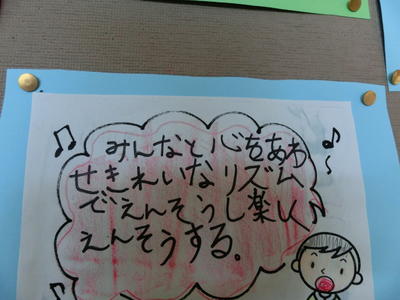 みんなと心をあわ
せきれいなリズム
でえんそうし楽しく
えんそうする。